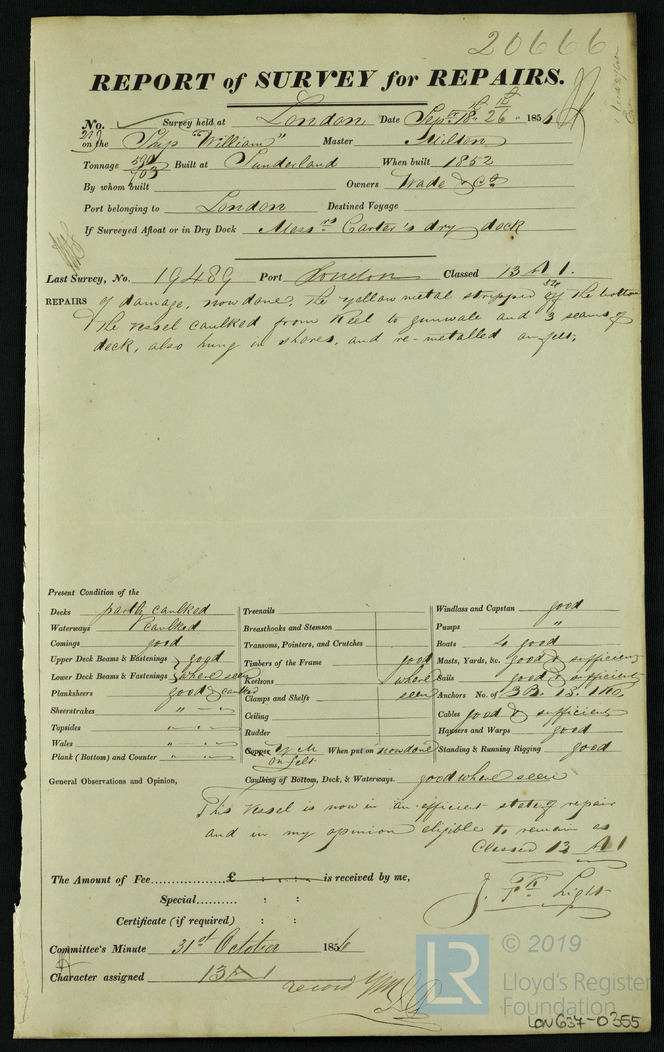 20666
REPORT of SURVEY for REPAIRS.
No. Survey held at London Date Sept 18th 26 1856
on the Ship "William" Master
Tonnage 590/703 Built at Sunderland When built 1852
By whom built Owners Wade & Co
Port belonging to London Destined Voyage
If Surveyed Afloat or in Dry Dock Messrs Carter's dry dock
Last Survey, No. 19489 Port London Classed 13 A 1.
REPAIRS of damage, now done, the yellow metal stripped off the bottom
The vessel caulked from Keel to gunwale and 3 seams of
deck, also hung in shores, and re-metalled on felt,
Present Condition of the
Decks partly caulked
Waterways caulked
Comings good
Upper Deck Beams & Fastenings } good
Lower Deck Beams & Fastenings } where seen
Planksheers good & caulked
Sheerstrakes " "
Topsides " "
Wales " "
Plank (Bottom) and Counter " "
Treenails
Breasthooks and Stemson
Transoms, Pointers, and Crutches
Timbers of the Frame good
Keelsons where
Clamps and Shelfs seen
Ceiling
Rudder
Copper Y M When put on now done
on felt
Caulking of Bottom, Deck, & Waterways. good where seen
Windlass and Capstan good
Pumps "
Boats 4 good
Masts, Yards, &c. good & sufficient
Sails good & sufficient
Anchors No. of 3 B. 1 S. 1 K.
Cables good & sufficient
Hawsers and Warps good
Standing & Running Rigging good
General Observations and Opinion,
This vessel is now in an efficient state of repair
and in my opinion eligible to remain as
Classed 13 A 1
The Amount of Fee............... £ : : is received by me,
Special.......... : :
Certificate (if required) : :
J. Light
Committee's Minute 31st October 1856
Character assigned 13 A 1
record YM
LR © 2019
Lloyd's Register
Foundation
LON637-0355